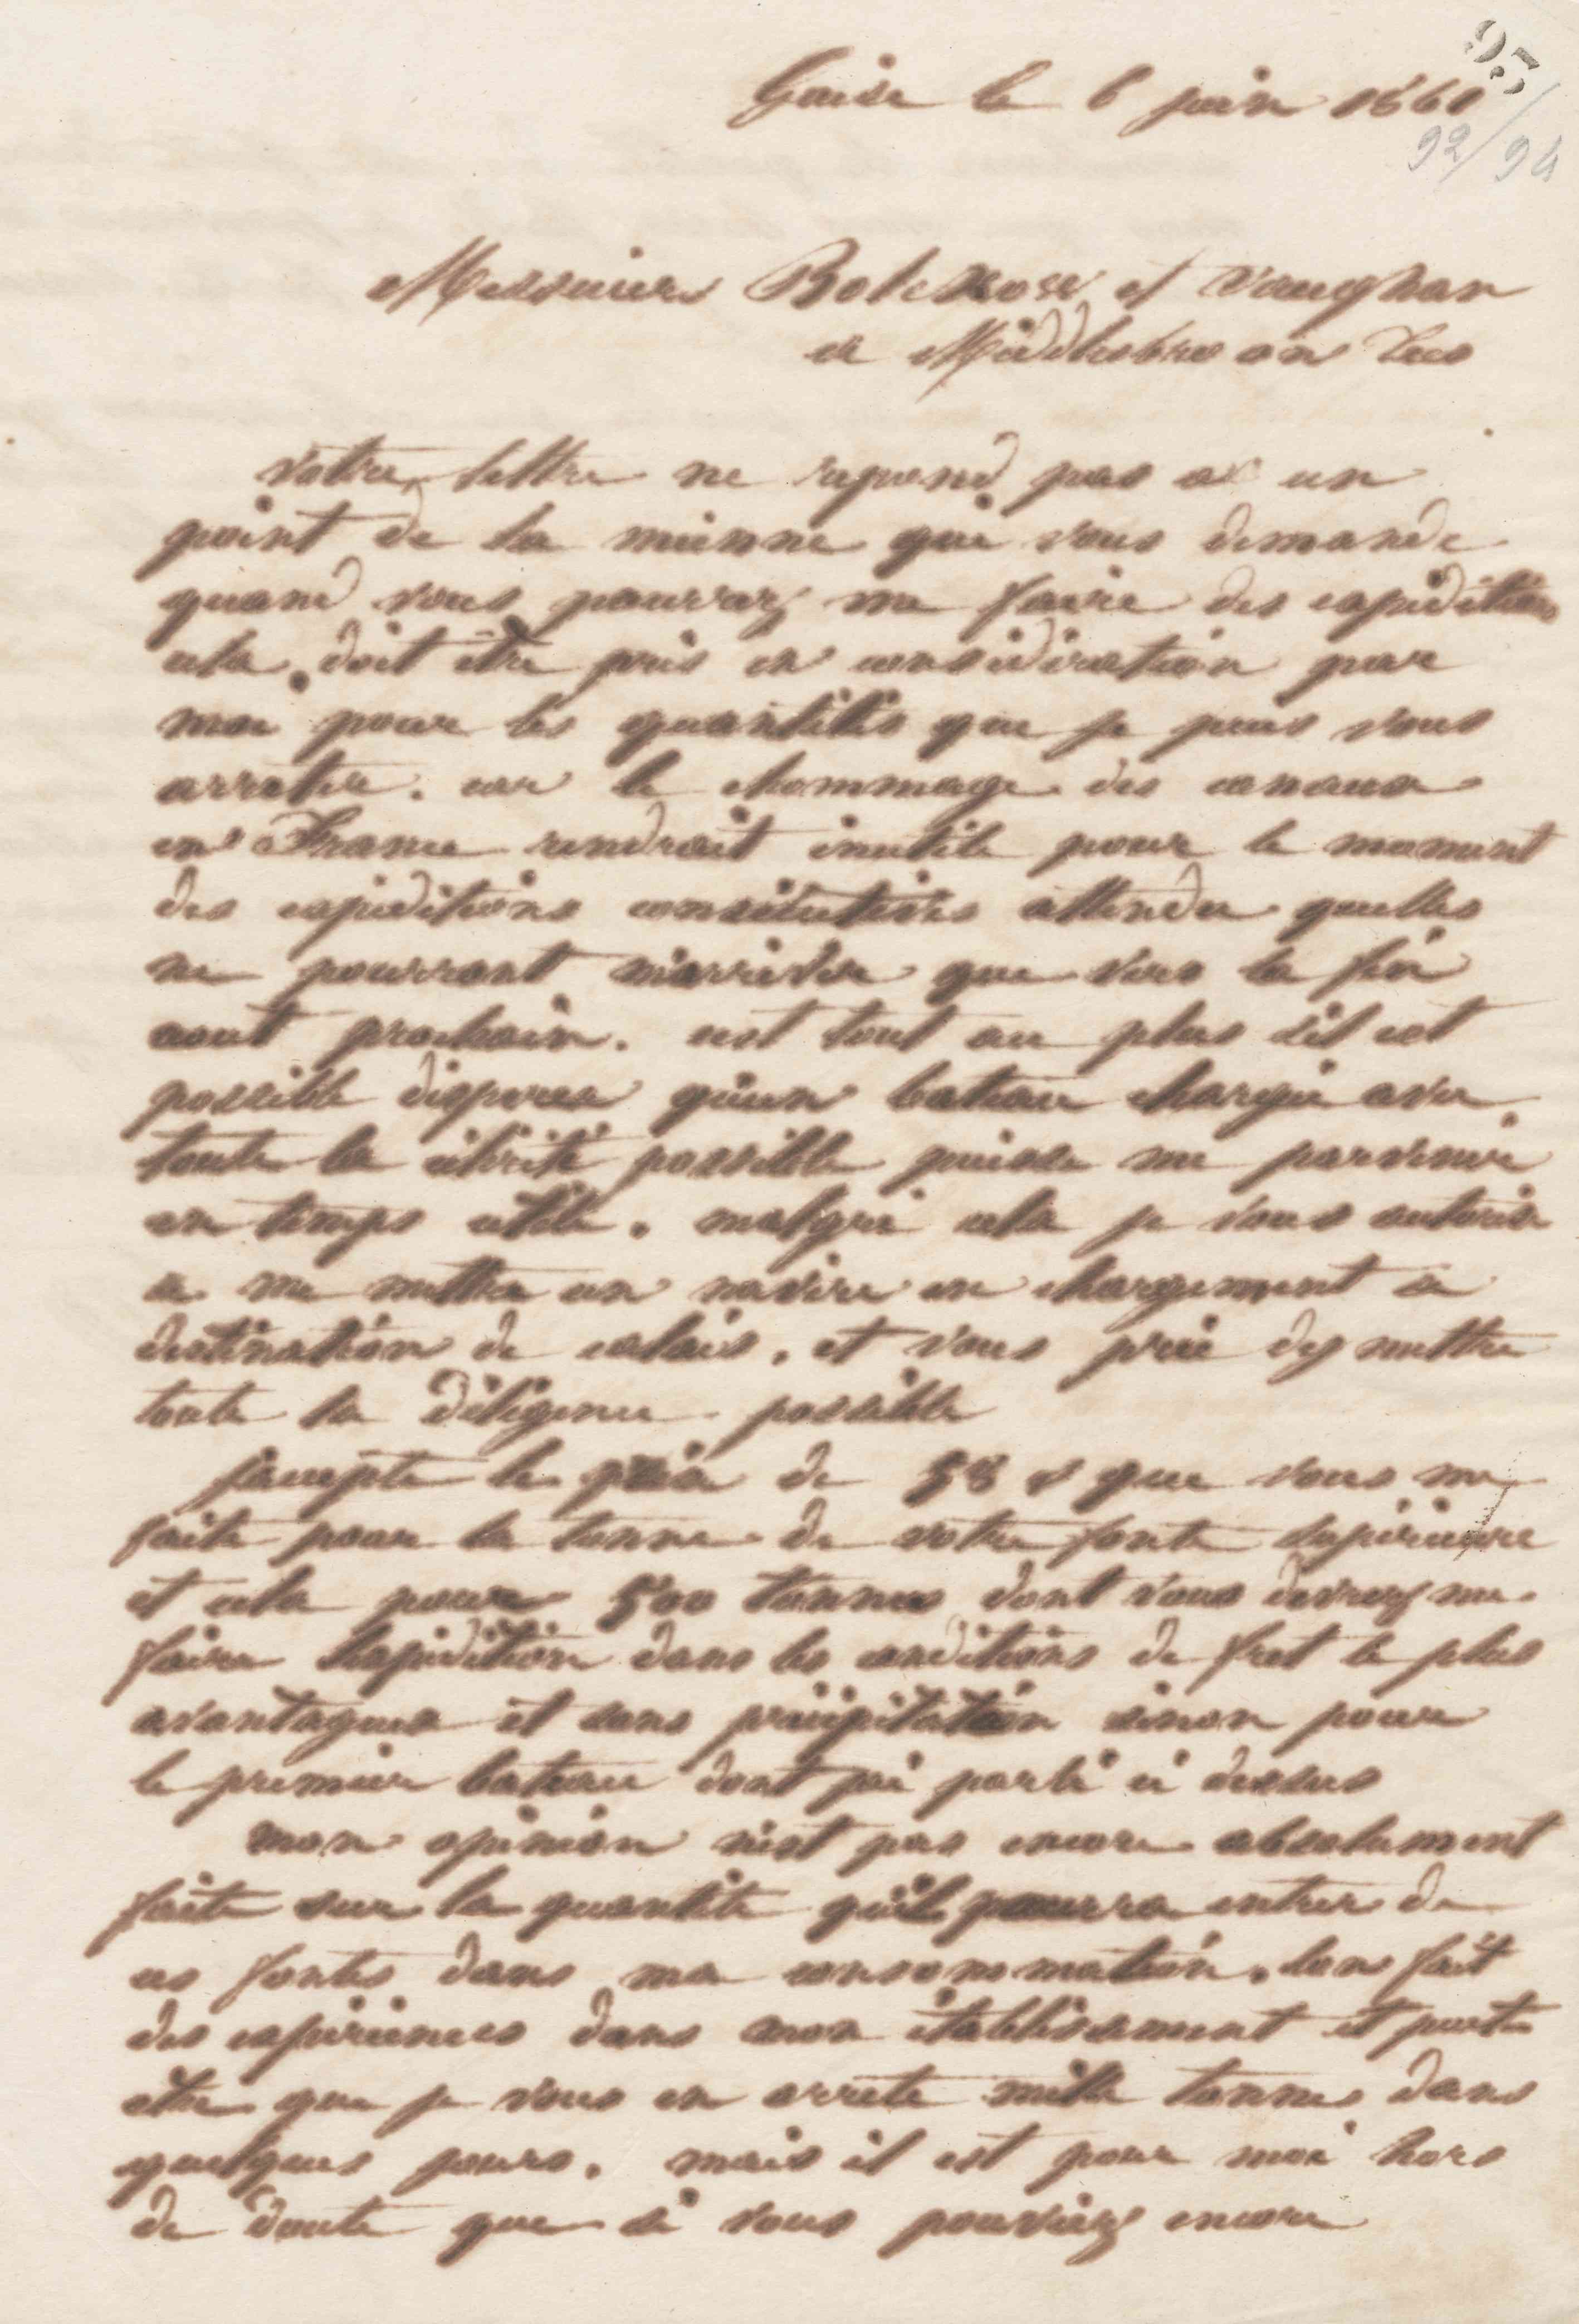 95
92/94
Guise le 6 juin 1861
Messieurs Bolckow et Vaughan
a Middlesbro on Tees
Votre lettre ne repond pas a un
point de la mienne qui vous demande
quand vous pourrez me faire des expéditions
cela doit être pris en considération par
moi pour les quantités que je puis vous
arrêter. car le chommage des canaux
en France rendrait inutile pour le moment
des expeditions consécutives attendu quelles
ne pourront m'arriver que vers la fin
aout prochain. cest tout au plus s'il est
possible disperer qu'un bateau chargé avec
toute la célérité possible puisse me parvenir
en temps utile. malgré cela je vous autorise
a me mettre un navire en chargement a
destination de calais. et vous prie dy mettre
toute la diligence possible
j'accepte le prix de 58 s que vous me
faite pour la tonne de votre fonte supérieure
et cela pour 500 tonnes dont vous devrez me
faire l'expédition dans les conditions de fret le plus
avantageux et sans précipitation sinon pour
le premier bateau dont j'ai parlé ci dessus
mon opinion n'est pas encore absolument
faite sur la quantité qu'il pourra entrer de
ces fontes dans ma consommation. lon fait
des expériences dans mon établissement et peut
etre que je vous en arrete mille tonnes dans
quelques jours. mais il est pour moi hors
de doute que si vous pouviez encore